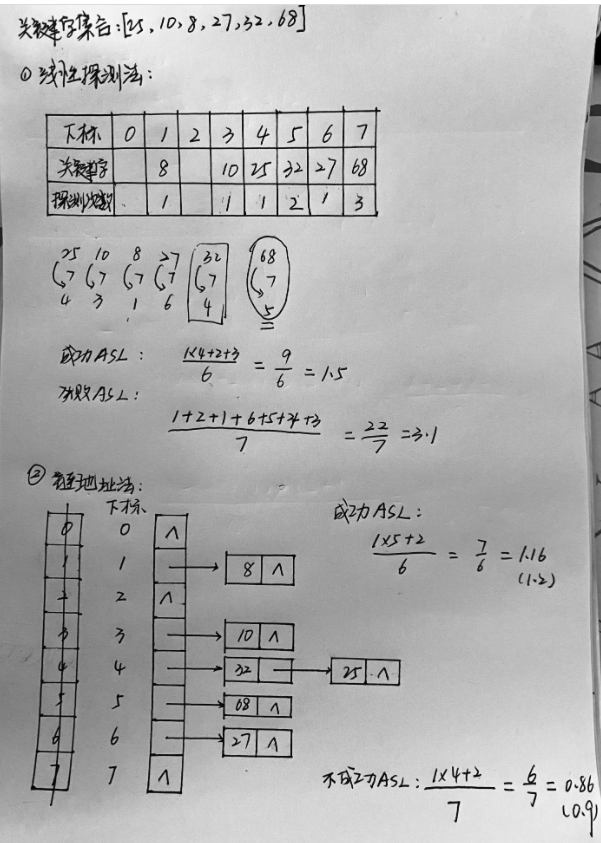 关键字集合:[25,10,8,27,32,68]
① 线性探测法:
下标 0 1 2 3 4 5 6 7
关键字 8 10 25 32 27 68
探测次数 1 1 1 2 1 3
25 10 8 27 32 68
7 7 7 7 7 7
4 3 1 6 4 5
成功ASL: 1×4+2+3 / 6 = 9/6 = 1.5
失败ASL:
1+2+1+6+5+4+3 / 7 = 22/7 = 3.1
② 链地址法:
下标
成功ASL:
1×5+2 / 6 = 7/6 = 1.16
(1.2)
0 0 ∧
1 1 8 ∧
2 2 ∧
3 3 10 ∧
4 4 32 25 ∧
5 5 68 ∧
6 6 27 ∧
7 7 ∧
不成功ASL: 1×4+2 / 7 = 6/7 = 0.86
(0.9)